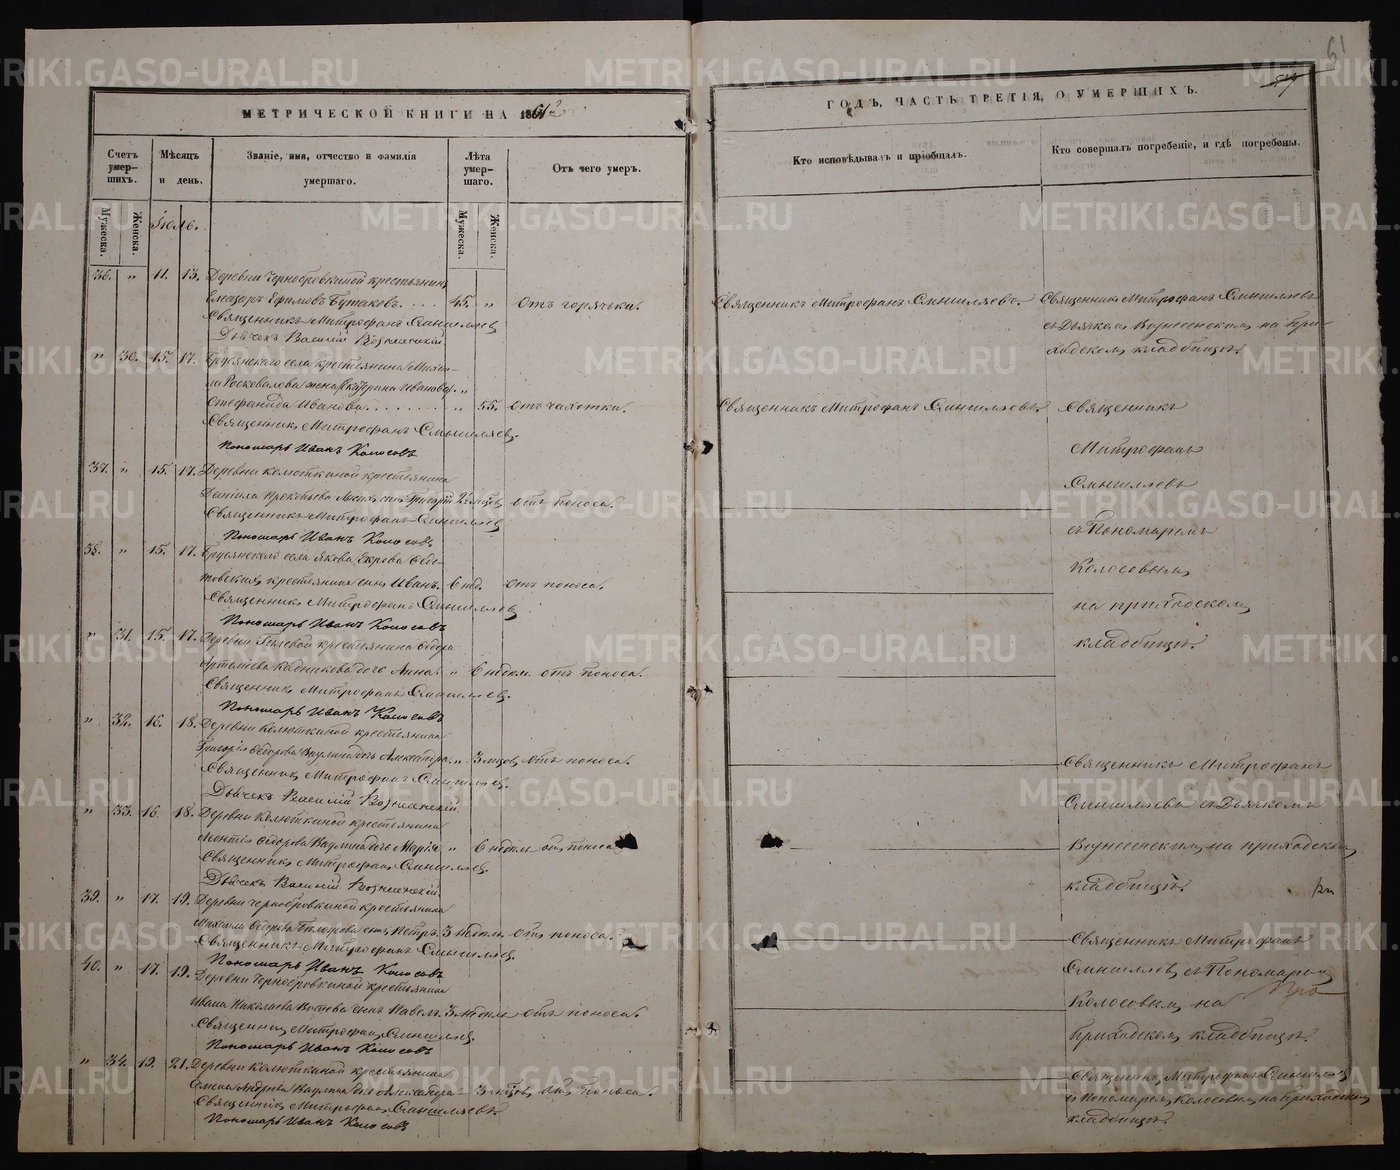 61
МЕТРИЧЕСКОЙ КНИГИ НА 1862
ГОДЪ, ЧАСТЬ ТРЕТІЯ, О УМЕРШИХЪ.
Счетъ умер-
шихъ.
Мѣсяцъ
и день.
Званіе, имя, отчество и фамилія
умершаго.
Лѣта
умер-
шаго.
Отъ чего умеръ.
Кто исповѣдывалъ и пріобщалъ.
Кто совершалъ погребеніе, и гдѣ погребены.
Мужеска.
Женска.
Мужеска.
Женска.
Іюль.
36. " 11. 13. Деревни Чернобровкиной крестьянинъ
Елеазаръ Ефимовъ Бутаковъ. 45. " Отъ горячьки.
Священникъ Митрофанъ Смышляевъ
Дьячекъ Василій Вознесенскій
Священникъ Митрофанъ Смышляевъ.
Священникъ Митрофанъ Смышляевъ
съ Дьячкомъ Вознесенскимъ на При-
ходскомъ кладбищѣ.
" 30. 15. 17. села крестьянина
жена Иванова "
Стефанида Иванова " 55. Отъ чахотки.
Священникъ Митрофанъ Смышляевъ.
Пономарь Иванъ Колосовъ
Священникъ Митрофанъ Смышляевъ.
Священникъ
Митрофанъ
Смышляевъ
съ Пономаремъ
Колосовымъ
на приходскомъ
кладбищѣ.
37. " 15. 17. Деревни Колюткиной крестьянина
Даніила Прокопьева сынъ Григорій 2 Отъ поноса.
Священникъ Митрофанъ Смышляевъ
Пономарь Иванъ Колосовъ
38. " 15. 17. села Якова
крестьянина сынъ Иванъ. 6 нед. отъ поноса.
Священникъ Митрофанъ Смышляевъ
Пономарь Иванъ Колосовъ
" 31. 15. 17. Деревни Гилевой крестьянина
дочь Анна. " 6 недѣль отъ поноса.
Священникъ Митрофанъ Смышляевъ.
Пономарь Иванъ Колосовъ
" 32. 16. 18. Деревни Колюткиной крестьянина
Григорія Ѳедорова Ваулина дочь Александра. " 3 мѣсяцовъ отъ поноса.
Священникъ Митрофанъ Смышляевъ.
Дьячекъ Василій Вознесенскій
Священникъ Митрофанъ
Смышляевъ съ Дьячкомъ
Вознесенскимъ на приходскомъ
кладбищѣ.
" 33. 16. 18. Деревни Колюткиной крестьянина
Ѳедорова Ваулина дочь Марія " 6 недѣль отъ поноса
Священникъ Митрофанъ Смышляевъ.
Дьячекъ Василій Вознесенскій
39. " 17. 19. Деревни Чернобровкиной крестьянина
Михаила Ѳедорова сынъ Петръ. 3 недѣль отъ поноса.
Священникъ Митрофанъ Смышляевъ.
Пономарь Иванъ Колосовъ
Священникъ Митрофанъ
Смышляевъ съ Пономаремъ
Колосовымъ на
Приходскомъ кладбищѣ.
40. " 17. 19. Деревни Чернобровкиной крестьянина
Ивана Николаева сынъ Павелъ. 3 недѣль отъ поноса.
Священникъ Митрофанъ Смышляевъ.
Пономарь Иванъ Колосовъ
" 34. 19. 21. Деревни Колюткиной крестьянина
Ваулина дочь Александра 3 мѣсяцовъ отъ поноса.
Священникъ Митрофанъ Смышляевъ.
Пономарь Иванъ Колосовъ
Священникъ Митрофанъ Смышляевъ
съ Пономаремъ Колосовымъ на Приходскомъ
кладбищѣ.
METRIKI.GASO-URAL.RU